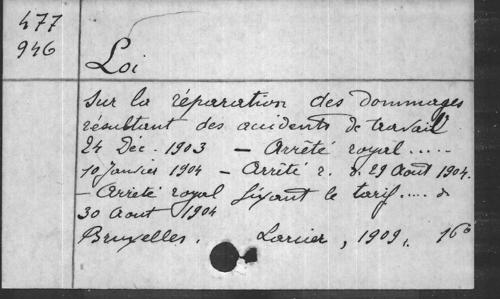 477
946
Loi
sur la réparation des dommages
résultant des accidents de travail
24 Dec. 1903 — Arrêté royal.....
10 Janvier 1904 — Arrêté r. d. 29 Aout 1904.
— Arrêté royal fixant le tarif.... d
30 Aout 1904
Bruxelles. Larcier, 1909. 16°